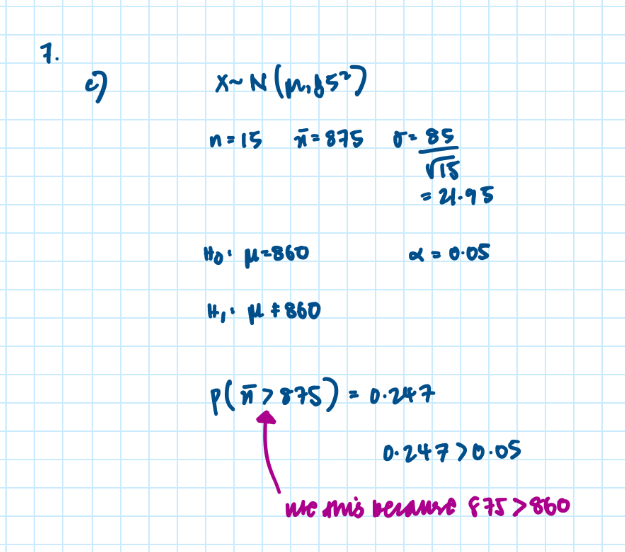 7.
c) X~N(μ,85²)
n=15 x̄=875 σ=85/√15
=21.95
H₀: μ=860 α=0.05
H₁: μ≠860
P(x̄>875)=0.247
0.247>0.05
use this because 875>860